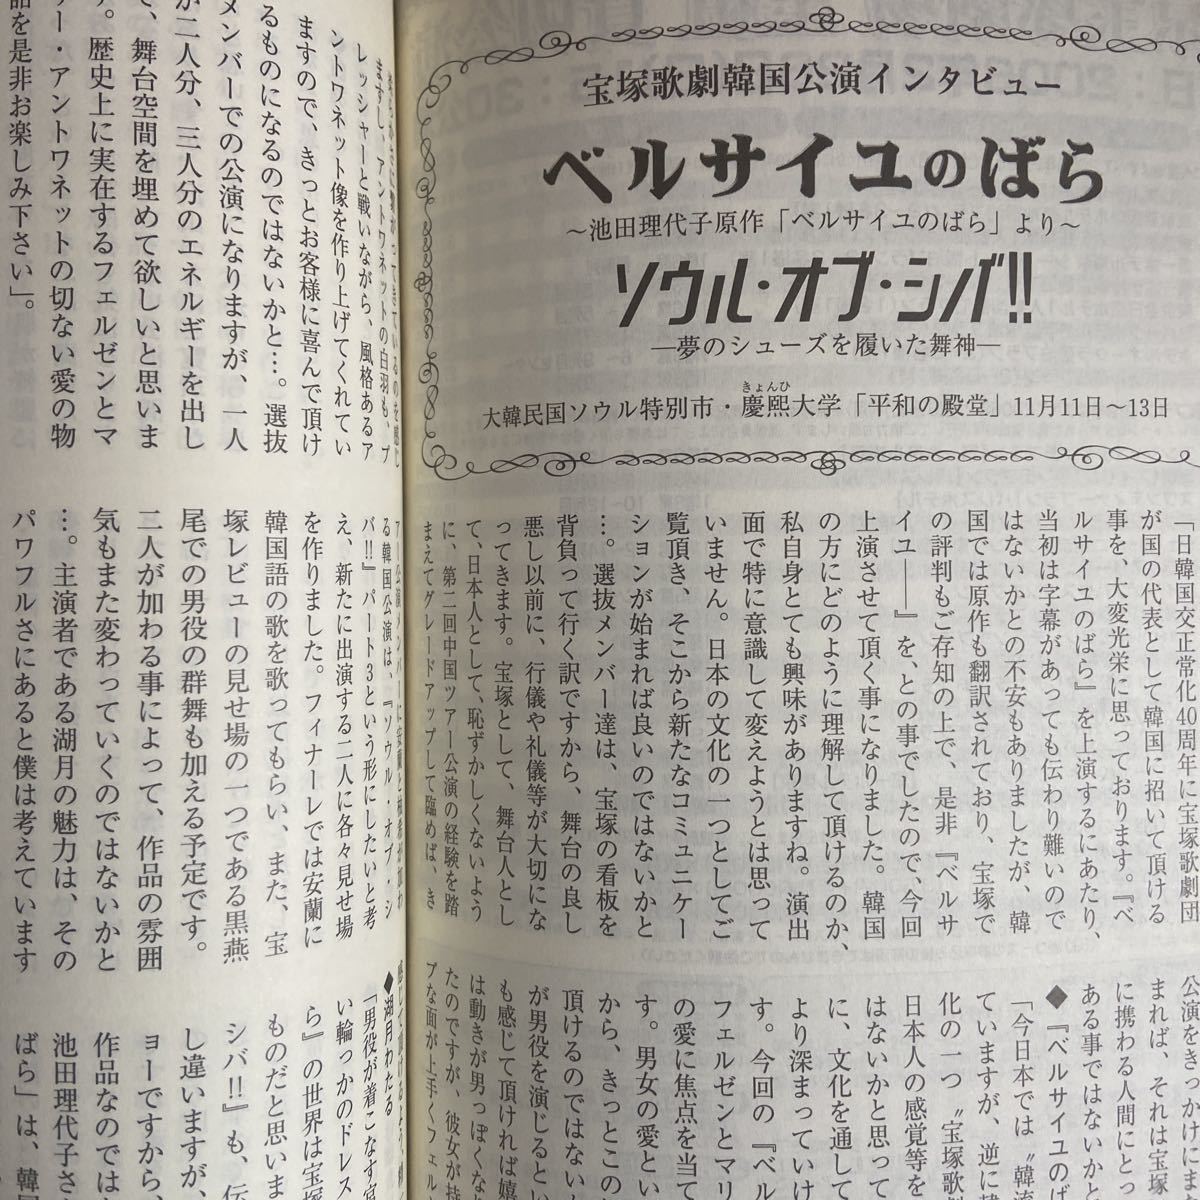 宝塚歌劇韓国公演インタビュー
ベルサイユのばら
～池田理代子原作「ベルサイユのばら」より～
ソウル・オブ・シバ!!
―夢のシューズを履いた舞神―
きょんひ
大韓民国ソウル特別市・慶熙大学「平和の殿堂」11月11日～13日
「日韓国交正常化40周年に宝塚歌劇団
が国の代表として韓国に招いて頂ける
事を、大変光栄に思っております。『ベ
ルサイユのばら』を上演するにあたり、
当初は字幕があっても伝わり難いので
はないかとの不安もありましたが、韓
国では原作も翻訳されており、宝塚で
の評判もご存知の上で、是非『ベルサ
イユ――』を、との事でしたので、今回
上演させて頂く事になりました。韓国
の方にどのように理解して頂けるのか、
私自身とても興味がありますね。演出
面で特に意識して変えようとは思って
いません。日本の文化の一つとしてご
覧頂き、そこから新たなコミュニケー
ションが始まれば良いのではないかと
…。選抜メンバー達は、宝塚の看板を
背負って行く訳ですから、舞台の良し
悪し以前に、行儀や礼儀等が大切にな
ってきます。宝塚として、舞台人とし
て、日本人として、恥ずかしくないよう
に、第二回中国ツアー公演の経験を踏
まえてグレードアップして臨めば、き
公演をきっかけにま
まれば、それは宝塚
に携わる人間にとっ
ある事ではないかと
◆『ベルサイユのば
「今日本では〝韓流
ていますが、逆に韓
化の一つ〝宝塚歌劇
日本人の感覚等を
はないかと思って
に、文化を通して
より深まっていけ
す。今回の『ベル
フェルゼンとマリ
の愛に焦点を当て
す。男女の愛とい
から、きっとこの
頂けるのではない
が男役を演じると
も感じて頂ければ嬉
は動きが男っぽくな
たのですが、彼女が持
プな面が上手くフェル
ますし、アントワネットの白羽も、プ
レッシャーと戦いながら、風格あるア
ントワネット像を作り上げてくれてい
ますので、きっとお客様に喜んで頂け
るものになるのではないかと…。選抜
メンバーでの公演になりますが、一人
が二人分、三人分のエネルギーを出し
て、舞台空間を埋めて欲しいと思いま
す。歴史上に実在するフェルゼンとマ
リー・アントワネットの切ない愛の物
語を是非お楽しみ下さい」。
る韓国公演は、『ソウル・オブ・シ
バ!!』パート3という形にしたいと考
え、新たに出演する二人に各々見せ場
を作りました。フィナーレでは安蘭に
韓国語の歌を歌ってもらい、また、宝
塚レビューの見せ場の一つである黒燕
尾での男役の群舞も加える予定です。
二人が加わる事によって、作品の雰囲
気もまた変わっていくのではないかと
…。主演者である湖月の魅力は、その
パワフルさにあると僕は考えています
◆湖月わたる
「男役が着こなす宮
い輪っかのドレス
ら』の世界は宝塚
ものだと思いま
シバ!!』も、伝
し違いますが、
ョーですから、
作品なのでは
池田理代子さ
ばら』は、韓国